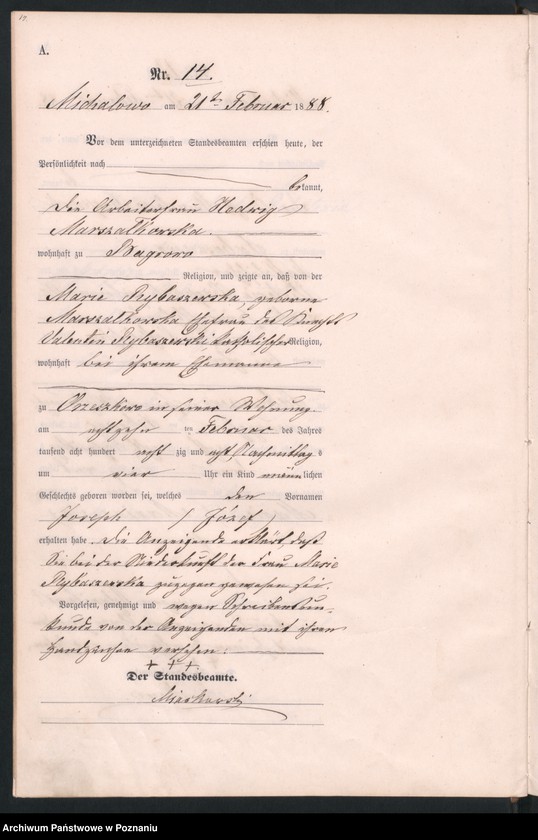 A.
Nr. 14.
Michalowo am 21ten Februar 1888.
Vor dem unterzeichneten Standesbeamten erschien heute, der
Persönlichkeit nach
bekannt,
die Arbeiterfrau Hedwig
Marszalkowska.
wohnhaft zu
Religion, und zeigte an, daß von der
Marie Rybaszewska, geborne
Marszalkowska Ehefrau des Knechts
Valentin Rybaszewski, katholischer Religion,
wohnhaft bei ihrem Ehemanne
zu Orzeszkowo in seiner Wohnung
am achtzehn ten Februar des Jahres
tausend acht hundert acht zig und acht, Nachmittags
um vier Uhr ein Kind männlichen
Geschlechts geboren worden sei, welches den Vornamen
Joseph / Józef /
erhalten habe. Die Anzeigende erklärt, daß
Sie bei der Niederkunft der Frau Marie
Rybaszewska zugegen gewesen sei.
Vorgelesen, genehmigt und wegen Schreibensun-
kunde von der Anzeigenden mit ihren
Handzeichen versehen.
+ + +.
Der Standesbeamte.
Archiwum Państwowe w Poznaniu